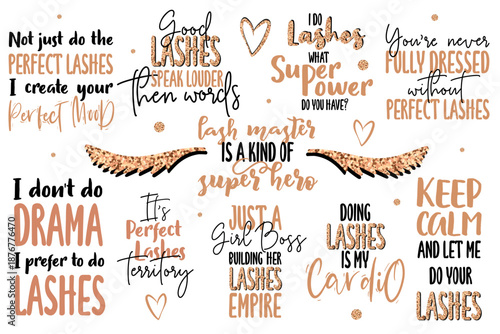 Not just do the
PERFECT LASHES
I create your
Perfect MooD
Good
LASHES
SPEAK LOUDER
then words
I DO
Lashes
WHAT
Super
Power
DO YOU HAVE?
You're never
FULLY DRESSED
without
PERFECT LASHES
Lash master
IS A KIND OF
super hero
I don't do
DRAMA
I prefer to do
LASHES
It's
Perfect
Lashes
Territory
JUST A
Girl Boss
BUILDING HER
LASHES
EMPIRE
DOING
LASHES
IS MY
CardiO
KEEP
CALM
AND LET ME
DO YOUR
LASHES
Adobe Stock | #1876776470